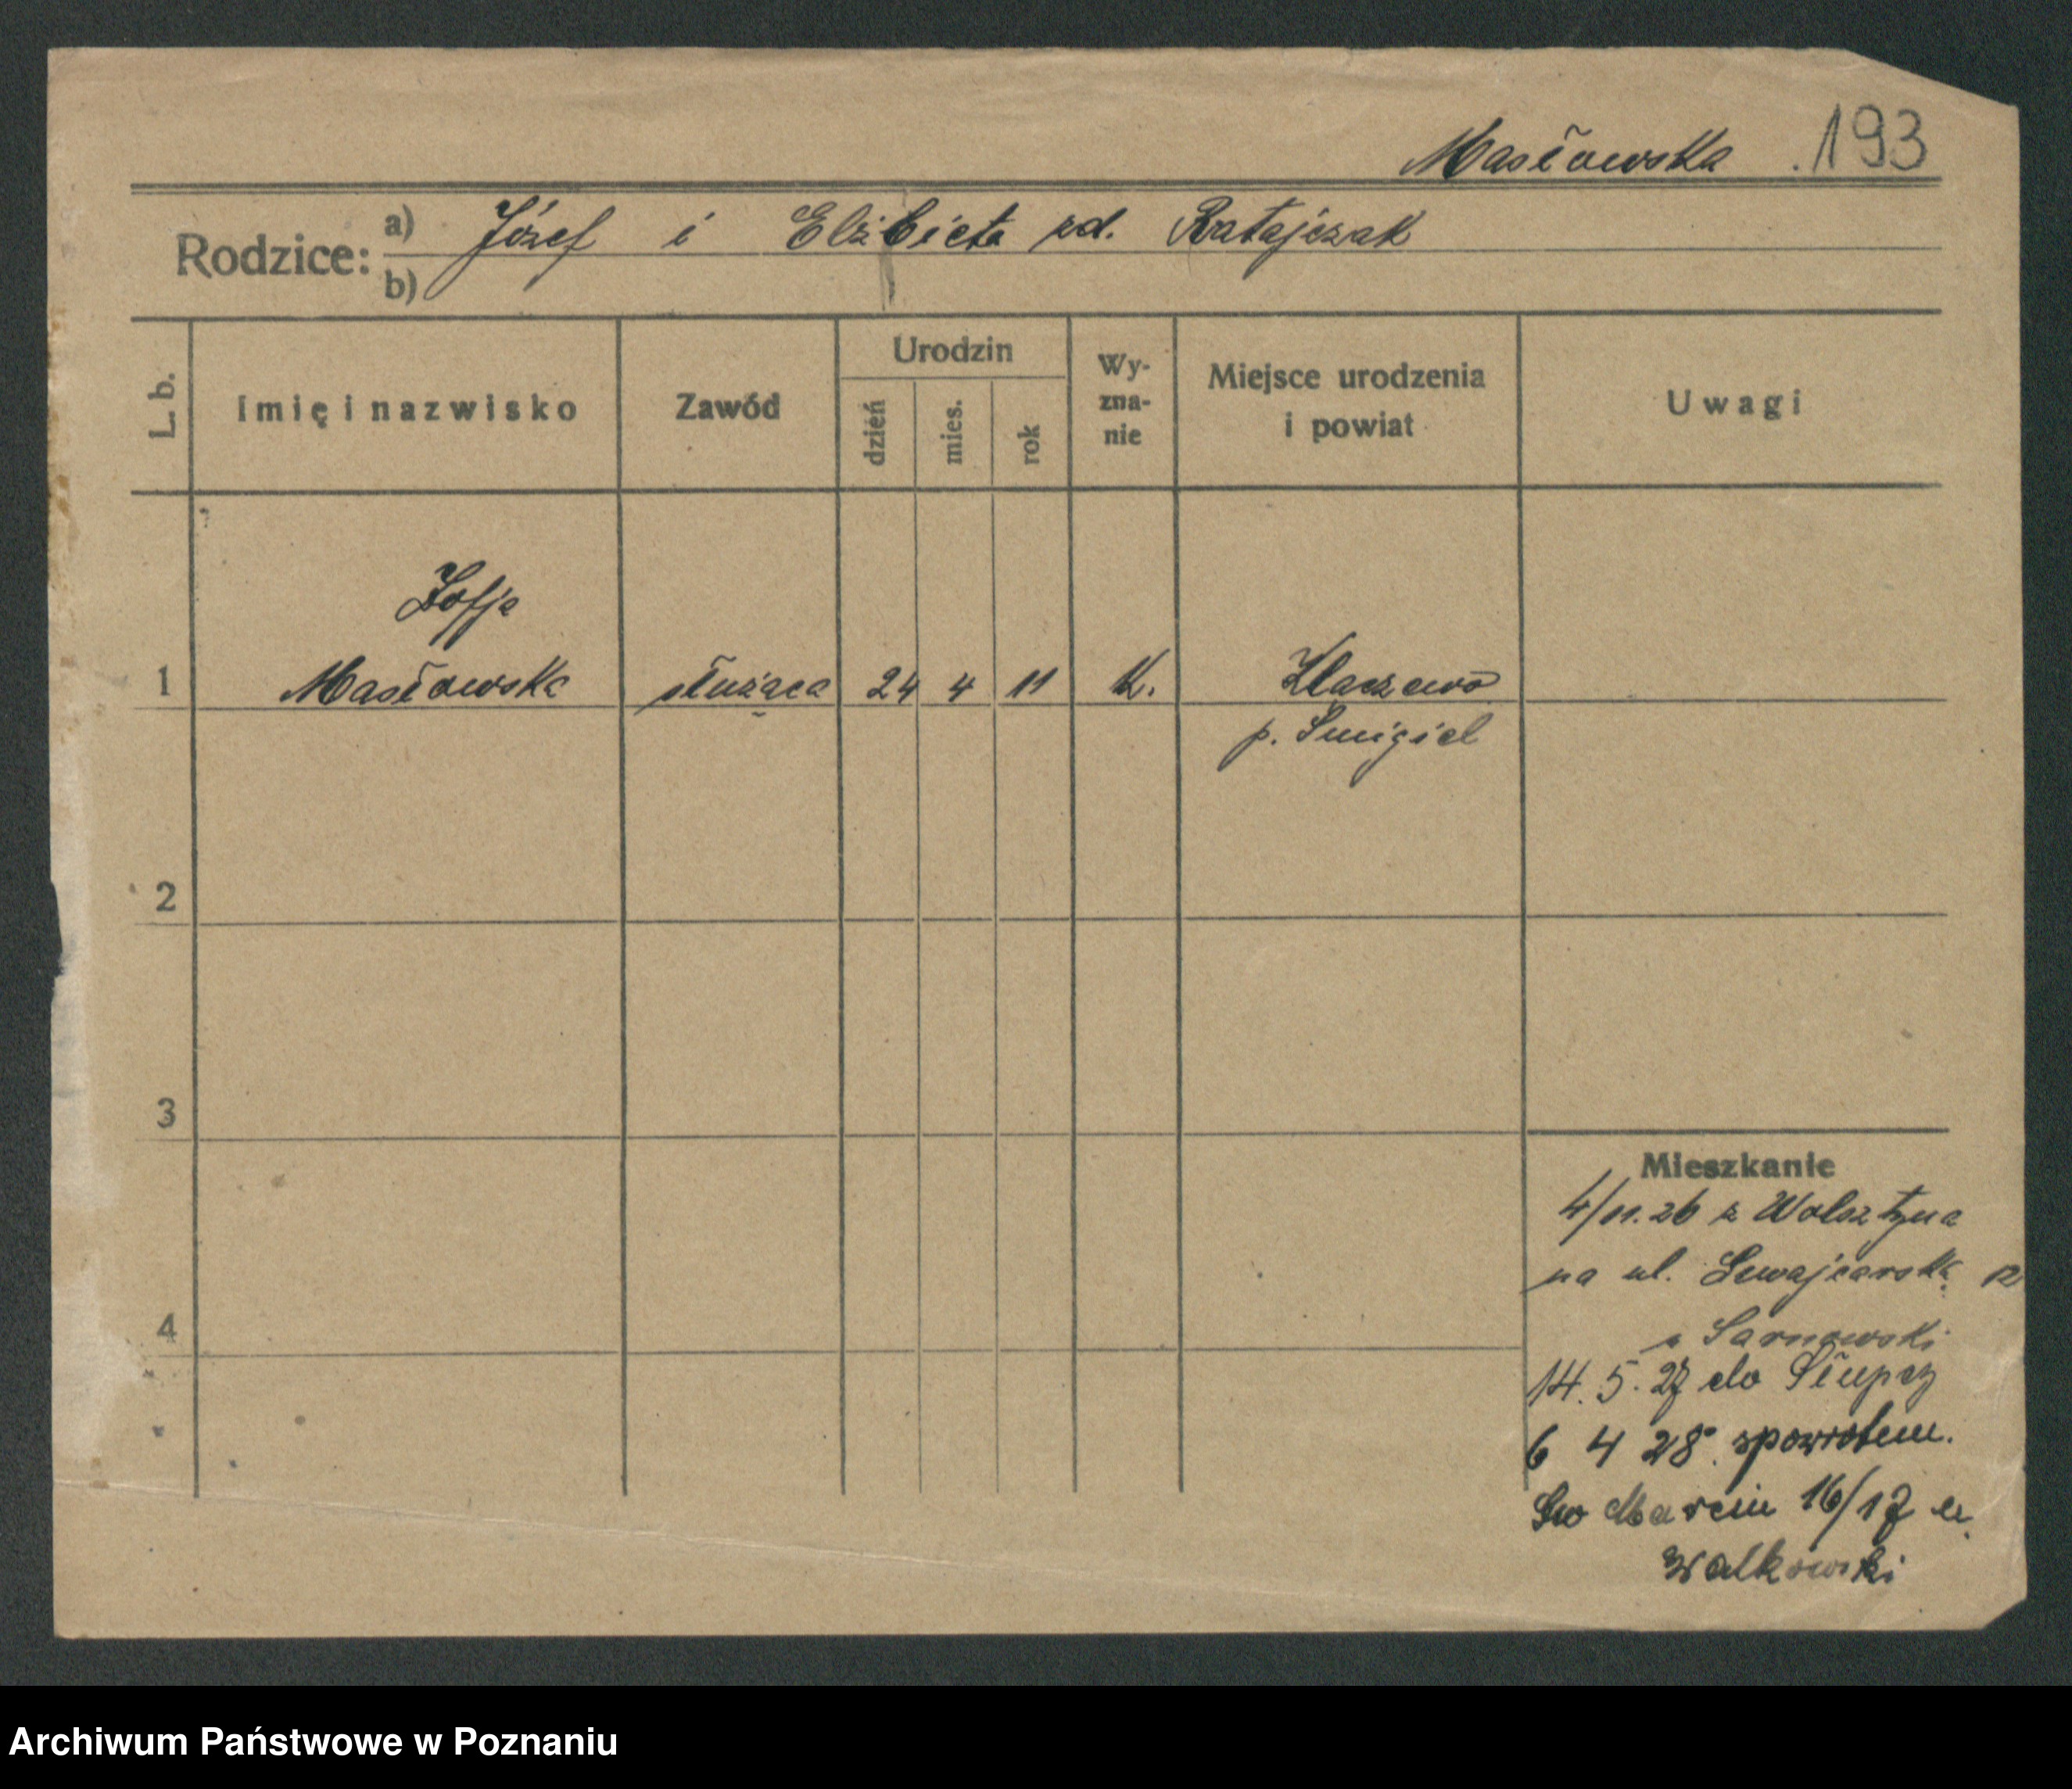 Masłowska 193
Rodzice: a) Józef i Elżbieta zd. Ratajczak
b)
L. b. Imię i nazwisko Zawód Urodzin dzień mies. rok Wy-zna-nie Miejsce urodzenia i powiat Uwagi
Zofja
1 Masłowska służąca 24 4 11 k.
p. Śmigiel
2
3
Mieszkanie
4/11.26 z Wolsztyna
na ul.
4
Sarnowski
14. 5. 27 do Słupcy
6 4 28. spowrotem.
Św Marcin 16/17 u.
Walkowski
Archiwum Państwowe w Poznaniu